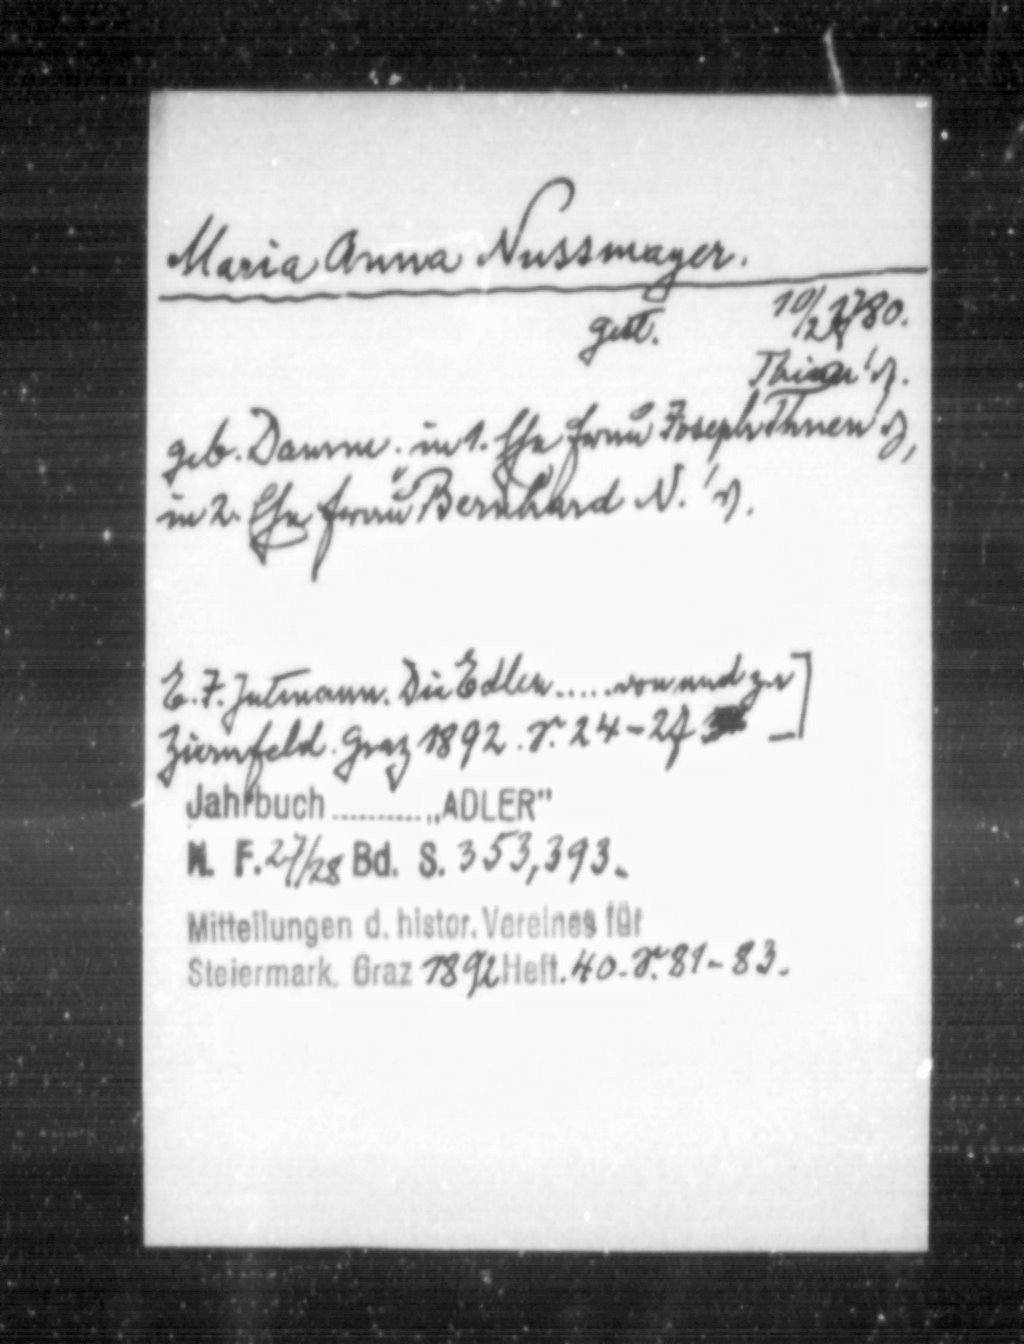 Maria Anna Nussmayer.
gest. 10/2 1780.
geb. Damm. in 1. Ehe Frau Joseph Thnen's,
in 2. Ehe Frau Bernhard N.'s.
E. F. Gutmann. Die Edlen......von und zu
Ziernfeld. Graz 1892. S. 24-27
Jahrbuch .......... „ADLER"
N. F. 27/28 Bd. S. 353, 393.
Mitteilungen d. histor. Vereines für
Steiermark. Graz 1892 Heft. 40. S. 81-83.